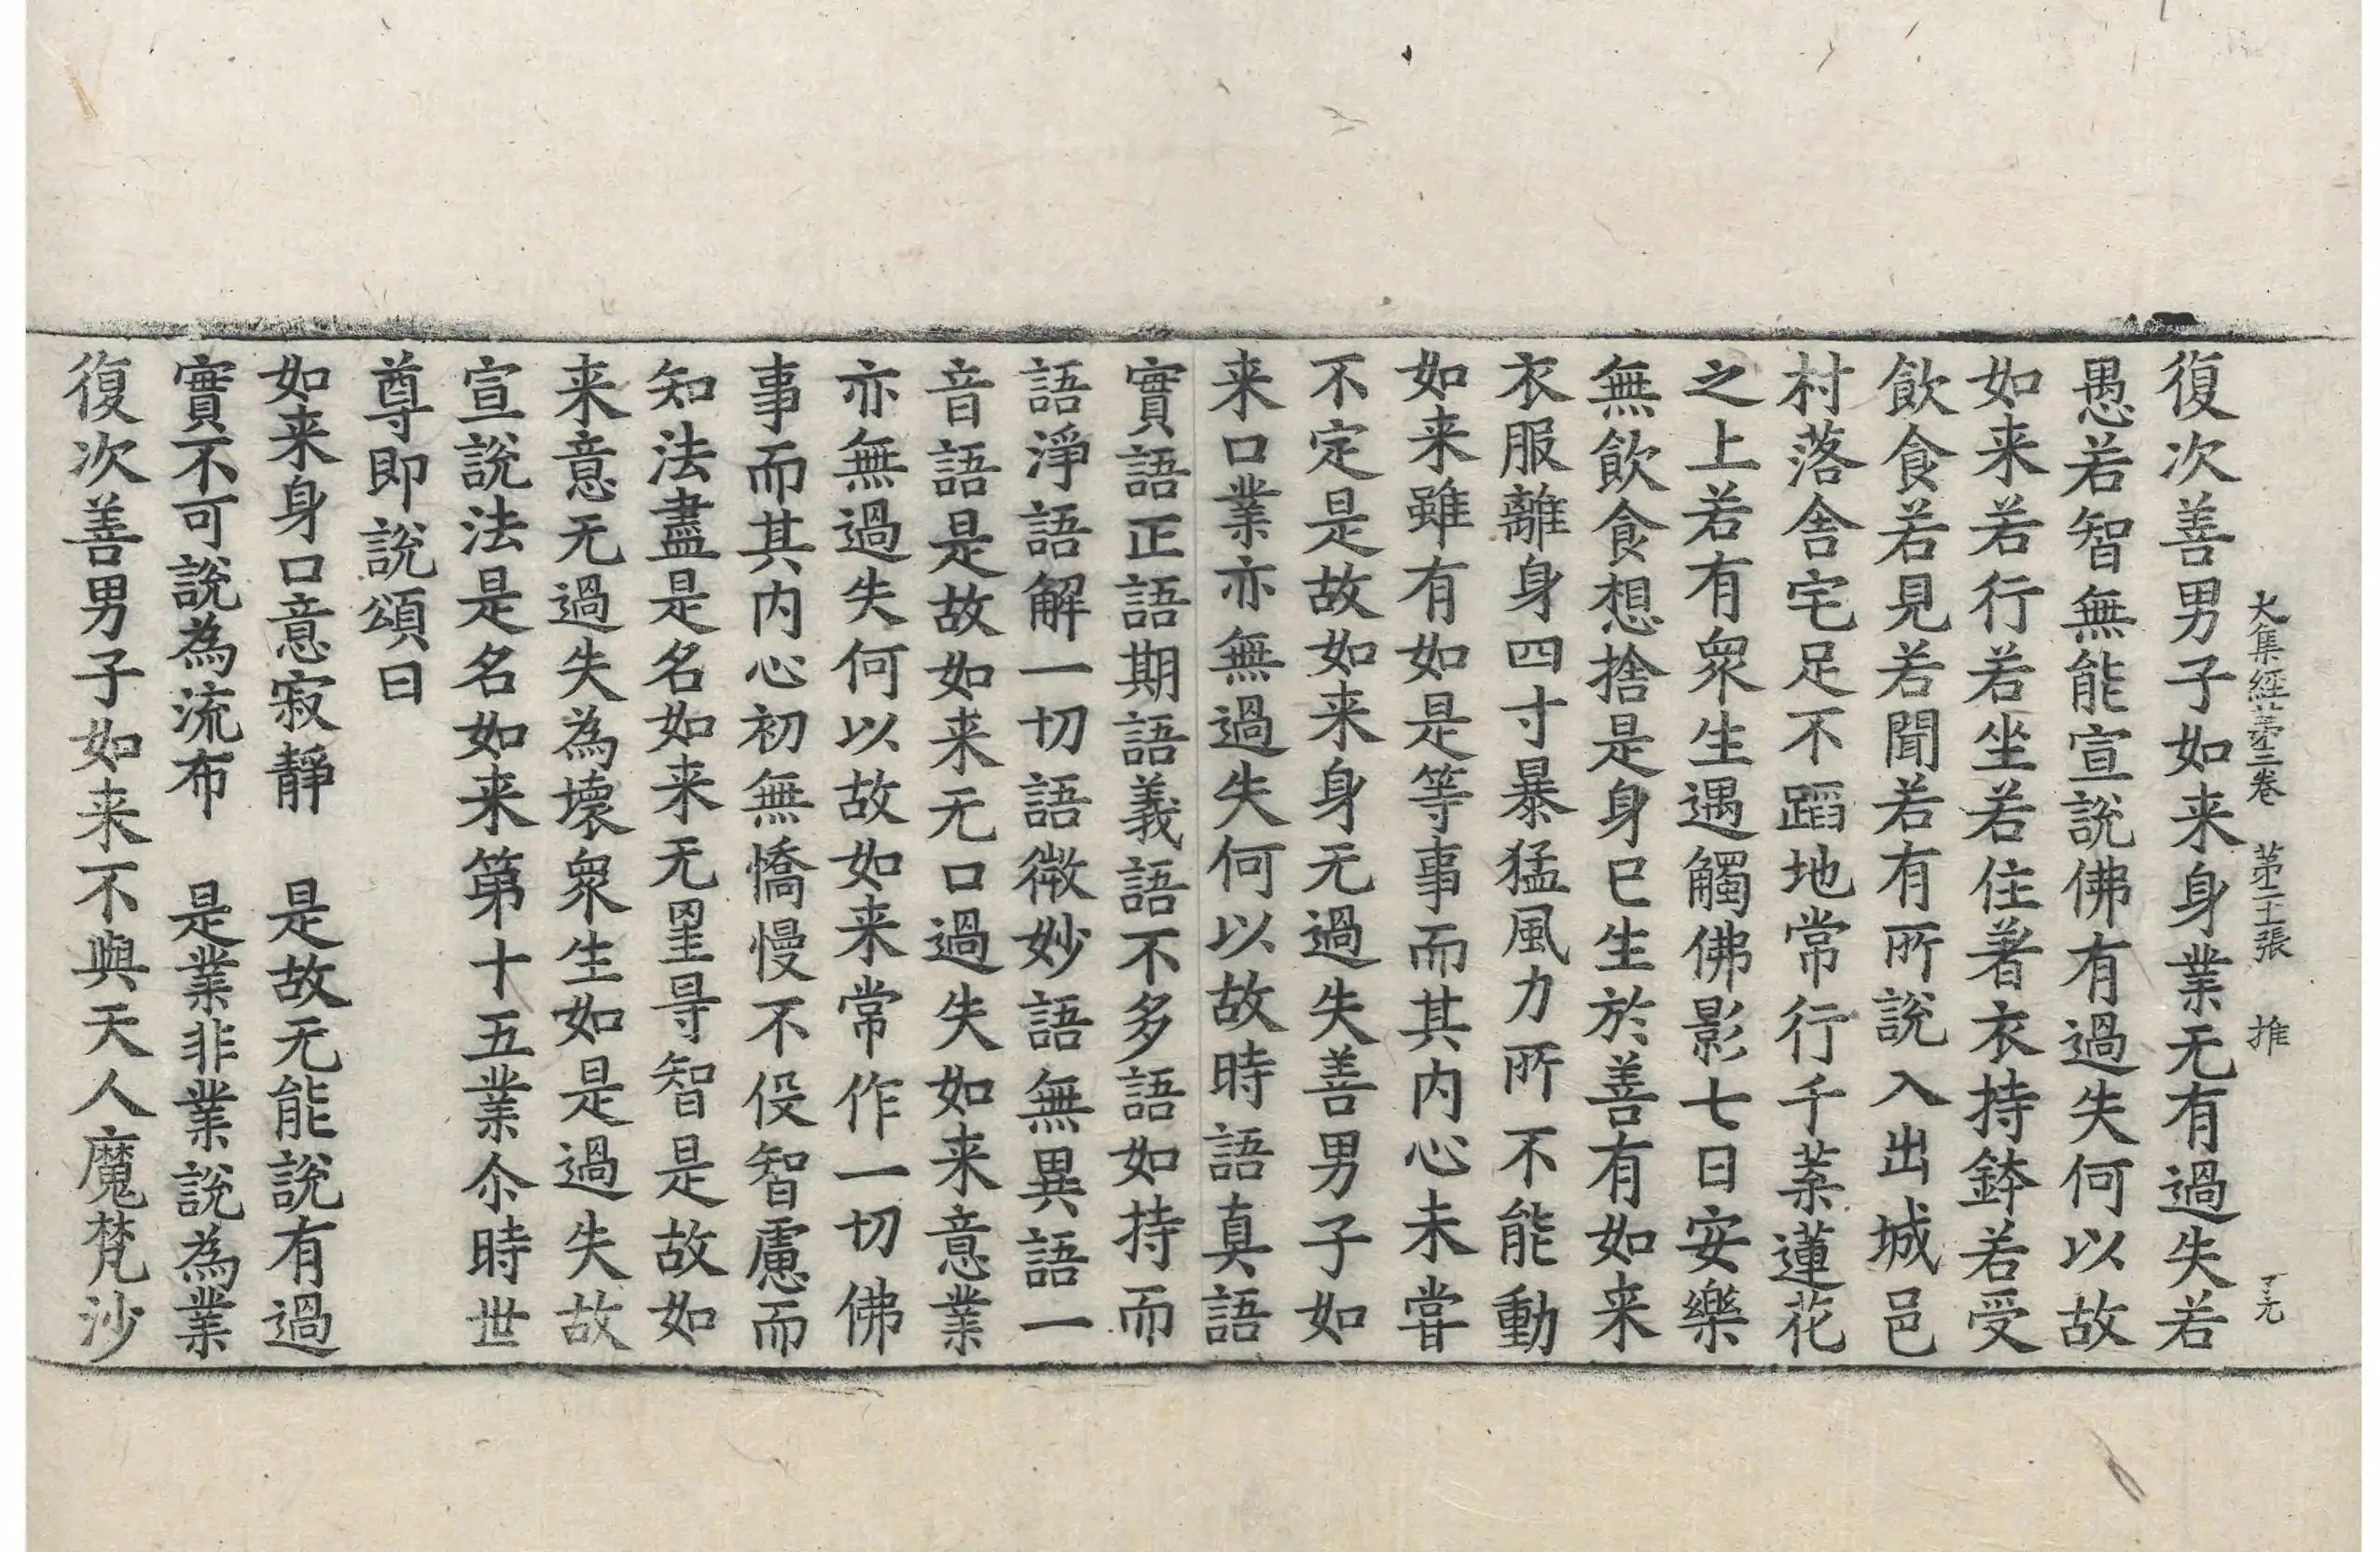 大集經第三卷　第二十張　推　了元
復次善男子如来身業无有過失若
愚若智無能宣說佛有過失何以故
如来若行若坐若住著衣持鉢若受
飲食若見若聞若有所說入出城邑
村落舎宅足不蹈地常行千葉蓮花
之上若有衆生遇觸佛影七日安樂
無飲食想捨是身已生於善有如来
衣服離身四寸暴猛風力所不能動
如来雖有如是等事而其内心未甞
不定是故如来身无過失善男子如
来口業亦無過失何以故時語真語
實語正語期語義語不多語如持而
語淨語解一切語微妙語無異語一
音語是故如来无口過失如来意業
亦無過失何以故如来常作一切佛
事而其内心初無憍慢不伇智慮而
知法盡是名如来无罣㝵智是故如
来意无過失為壞衆生如是過失故
宣說法是名如来第十五業尒時世
尊即說頌曰
如来身口意寂靜　是故无能說有過
實不可說為流布　是業非業說為業
復次善男子如来不與天人魔梵沙